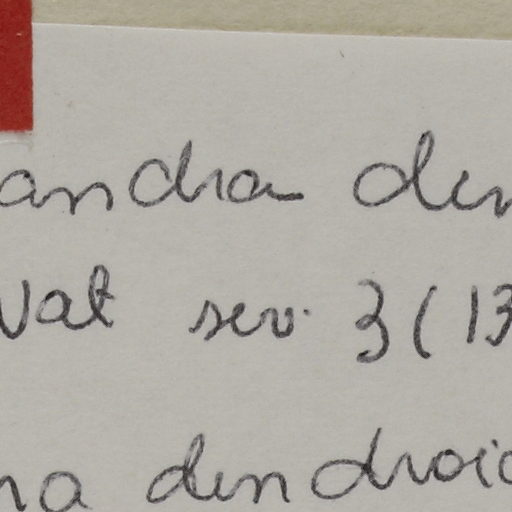 andra den
Nat ser. 3 (13
na dendroid